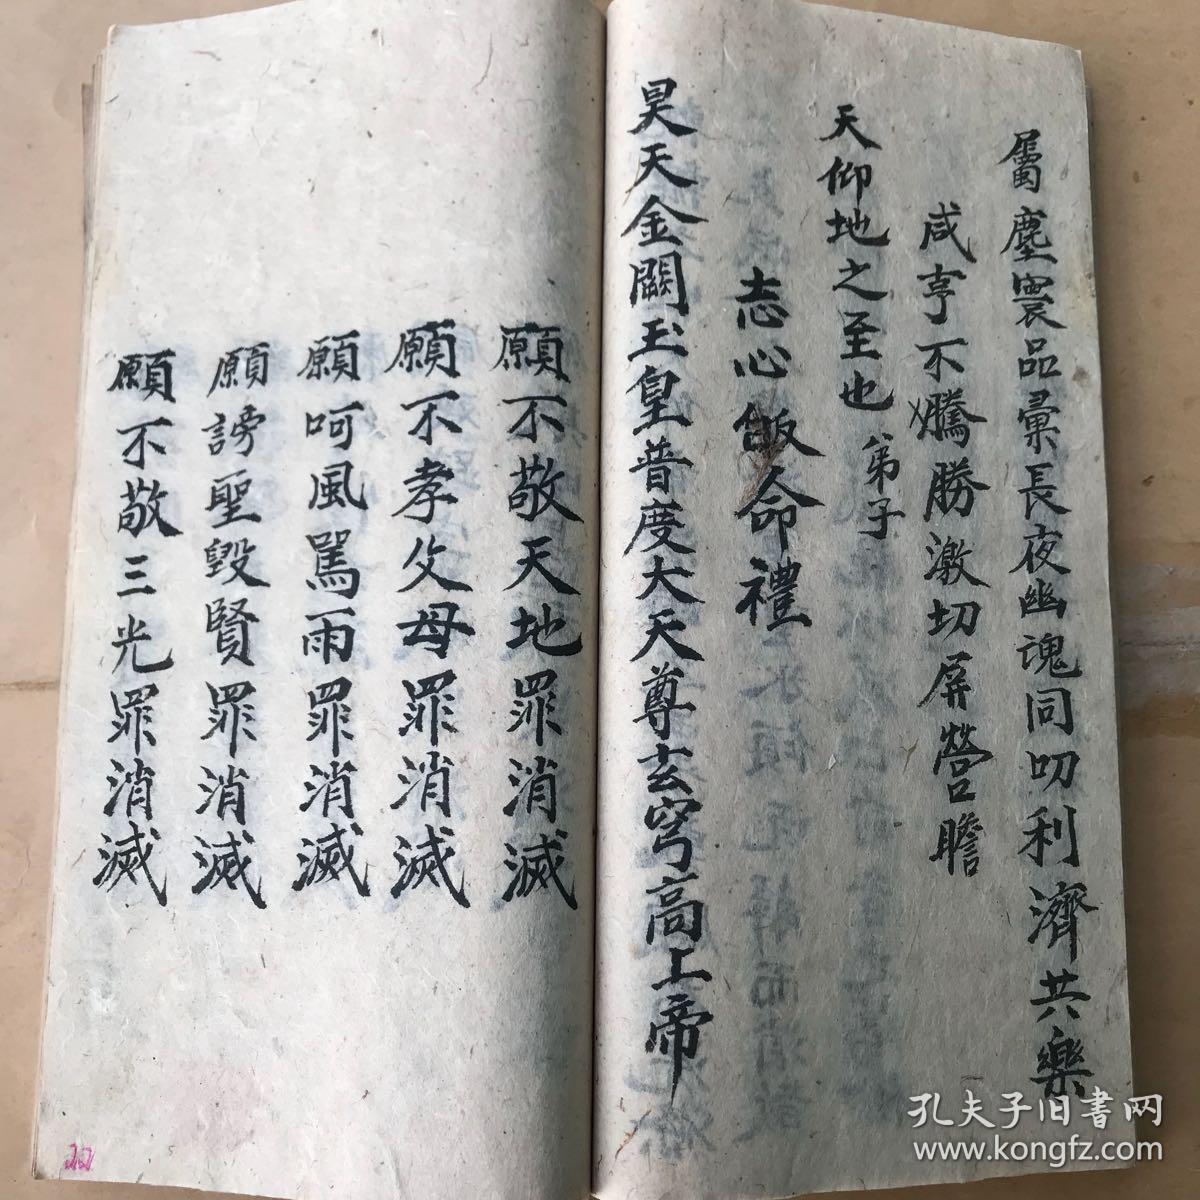 屬塵寰品彙長夜幽魂同叨利濟共樂
咸亨不騰勝激切屏營瞻
天仰地之至也弟子
志心皈命禮
昊天金闕玉皇普度大天尊玄穹高上帝
願不敬天地罪消滅
願不孝父母罪消滅
願呵風駡雨罪消滅
願謗聖毀賢罪消滅
願不敬三光罪消滅
22
孔夫子旧書网
www.kongfz.com